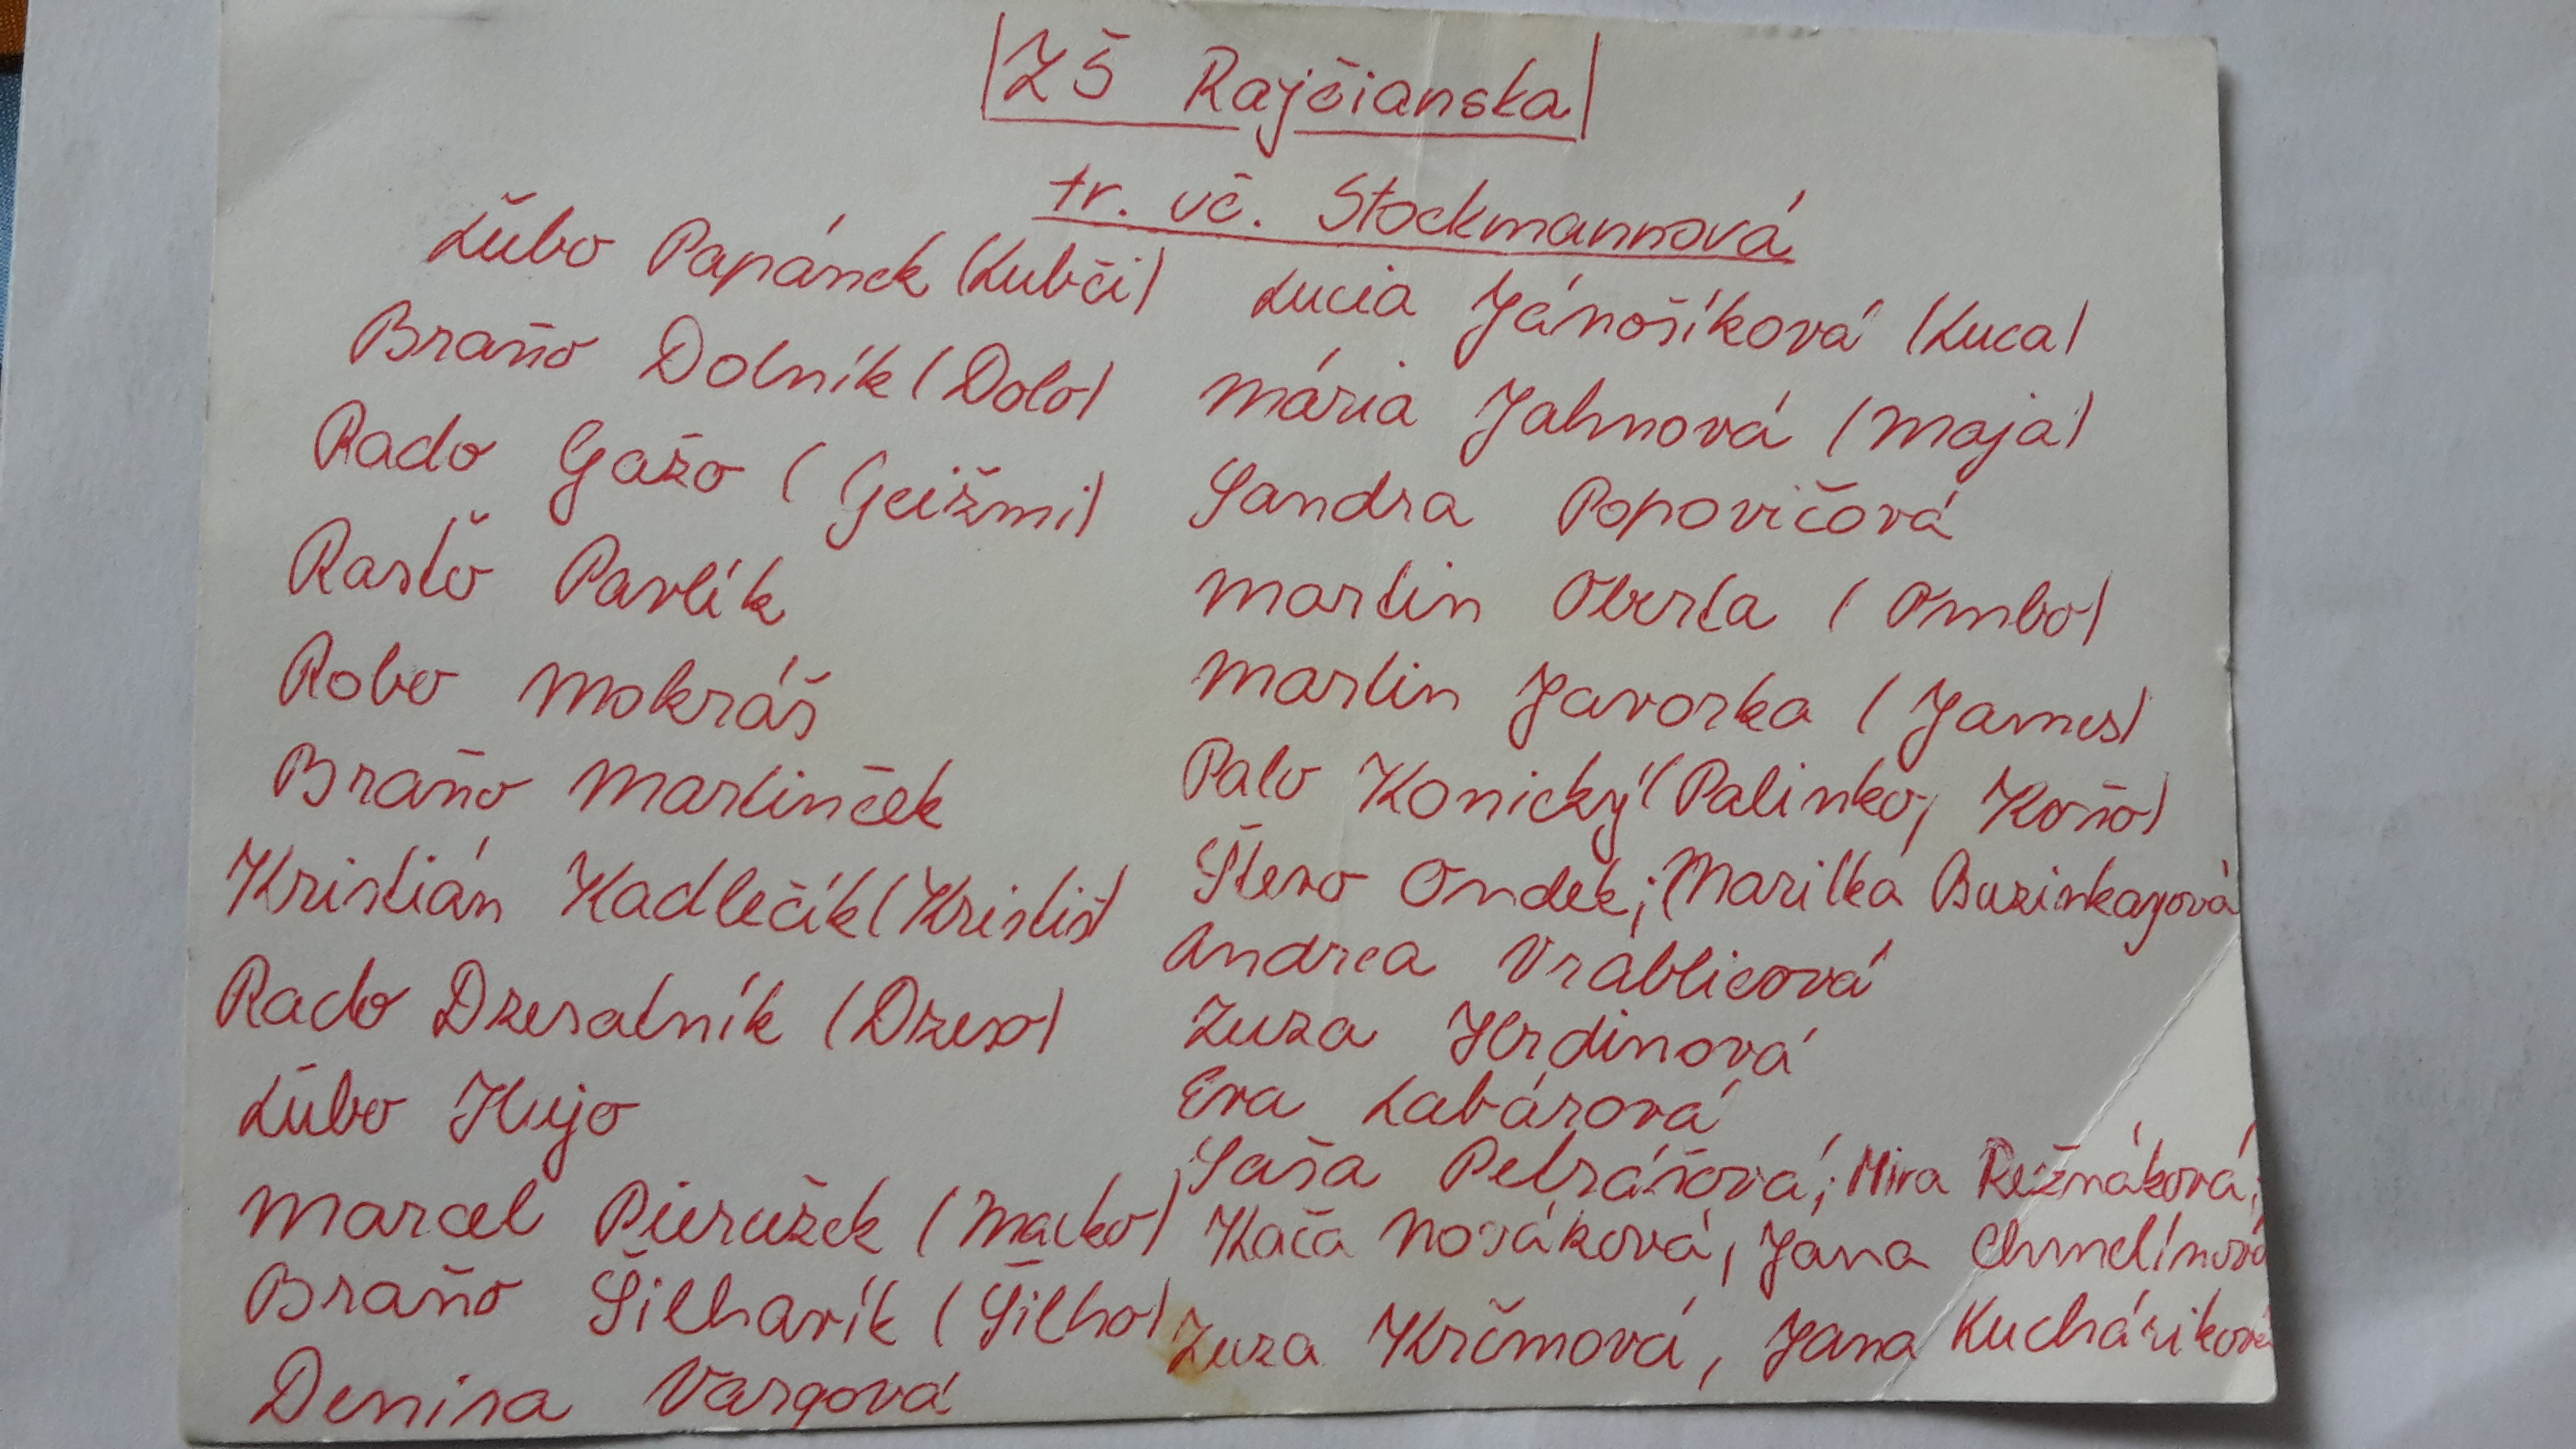 ZŠ Rajčianska
tr. uč. Stockmannová
Ľubo Papánek (Lubči)
Braňo Dolník (Dolo)
Rado Gažo (Geižmi)
Rasťo Pavlík
Robo Mokráš
Braňo Martinček
Kristián Kadlečík (Kristiš)
Rado Dzesatník (Dzeso)
Ľubo Hujo
Marcel Pieružek (Macko)
Braňo Šilhavík (Šilho)
Denisa Vargová
Lucia Jánošíková (Luca)
Mária Jahnová (Maja)
Sandra Popovičová
Martin Oberta (Ombo)
Martin Javorka (James)
Palo Konický (Palinko, Koňo)
Števo Ondek; (Marilka Buzinkayová
Andrea Vráblicová
Zuza Hrdinová
Eva Labárová
Saša Petrášová; Mira Režnáková;
Kača Nováková, Jana Chmelínová
Zuza Krčmová, Jana Kucháriková